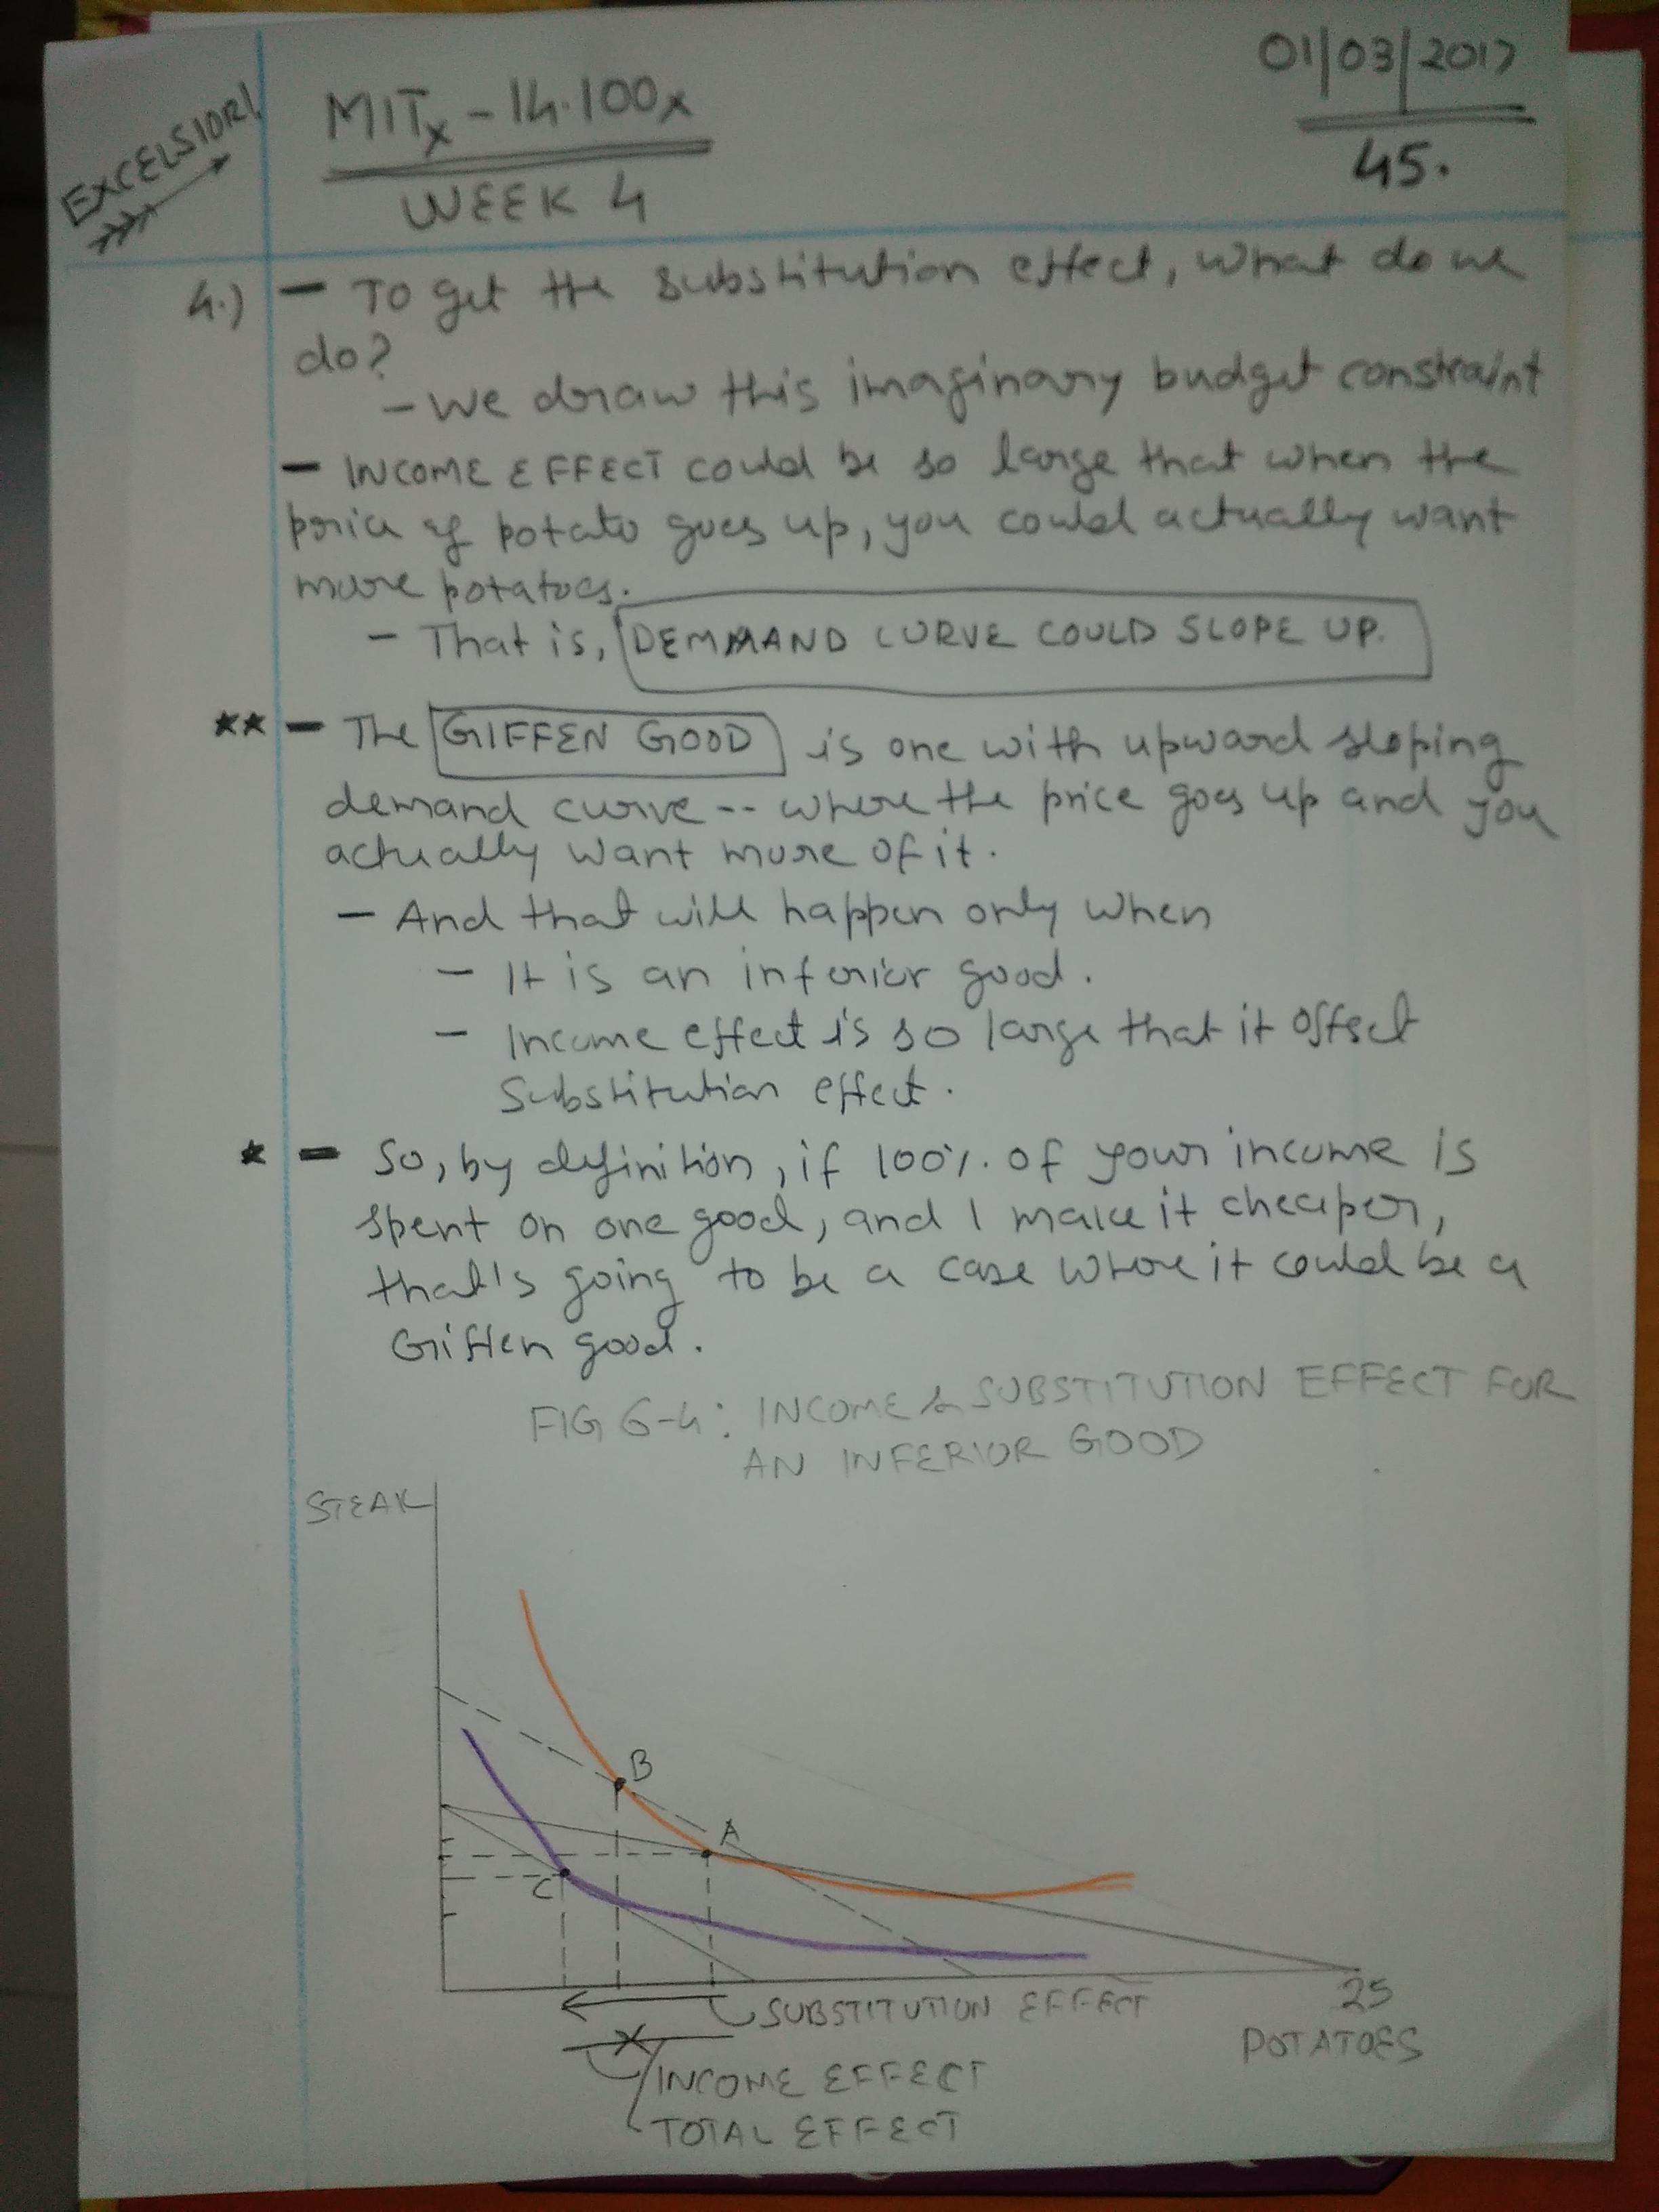 EXCELSIOR!
MITx - 14.100x
WEEK 4
01/03/2017
45.
4.) - To get the substitution effect, what do we
do?
- We draw this imaginary budget constraint
- INCOME EFFECT could be so large that when the
price of potato goes up, you could actually want
more potatoes.
- That is, DEMMAND CURVE COULD SLOPE UP.
** - The GIFFEN GOOD is one with upward sloping
demand curve -- where the price goes up and you
actually want more of it.
- And that will happen only when
- It is an inferior good.
- Income effect is so large that it offset
Substitution effect.
* - So, by definition, if 100%. of your income is
spent on one good, and I make it cheaper,
that's going to be a case where it could be a
Giffen good.
FIG 6-4: INCOME & SUBSTITUTION EFFECT FOR
AN INFERIOR GOOD
STEAK
B
A
C
25
SUBSTITUTION EFFECT
POTATOES
INCOME EFFECT
TOTAL EFFECT